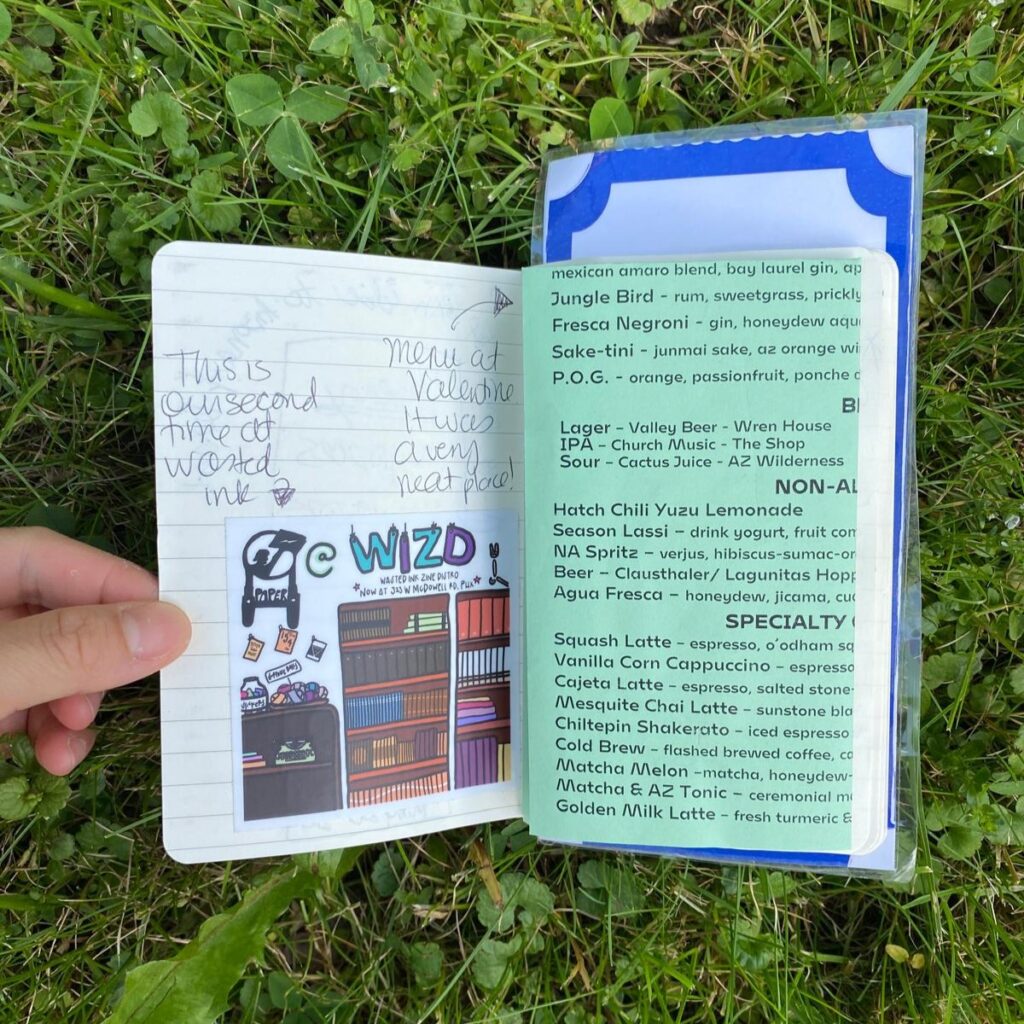 This is
our second
time at
wasted
ink
menu at
Valentine
It was
a very
neat place!
PAPER
@ WIZD
WASTED INK ZINE DISTRO
NOW AT W MCDOWELL RD. PHX
mexican amaro blend, bay laurel gin, ap
Jungle Bird – rum, sweetgrass, prickly
Fresca Negroni – gin, honeydew aqu
Sake-tini – junmai sake, az orange wi
P.O.G. – orange, passionfruit, ponche
Lager – Valley Beer - Wren House
IPA – Church Music - The Shop
Sour – Cactus Juice - AZ Wilderness
NON-AL
Hatch Chili Yuzu Lemonade
Season Lassi – drink yogurt, fruit com
NA Spritz – verjus, hibiscus-sumac-or
Beer – Clausthaler/ Lagunitas Hopp
Agua Fresca – honeydew, jicama, cuc
SPECIALTY
Squash Latte – espresso, o'odham sq
Vanilla Corn Cappuccino – espresso
Cajeta Latte – espresso, salted stone-
Mesquite Chai Latte – sunstone bla
Chiltepin Shakerato – iced espresso
Cold Brew – flashed brewed coffee, ca
Matcha Melon –matcha, honeydew-
Matcha & AZ Tonic – ceremonial ma
Golden Milk Latte – fresh turmeric &